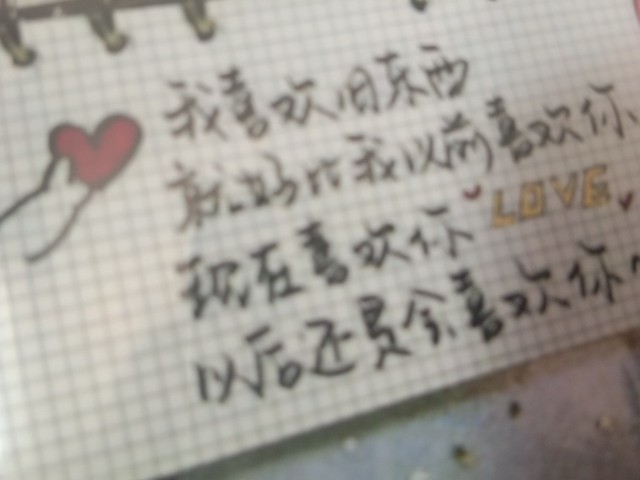 我喜欢旧东西
就好比我以前喜欢你
现在喜欢你
LOVE
以后还是会喜欢你